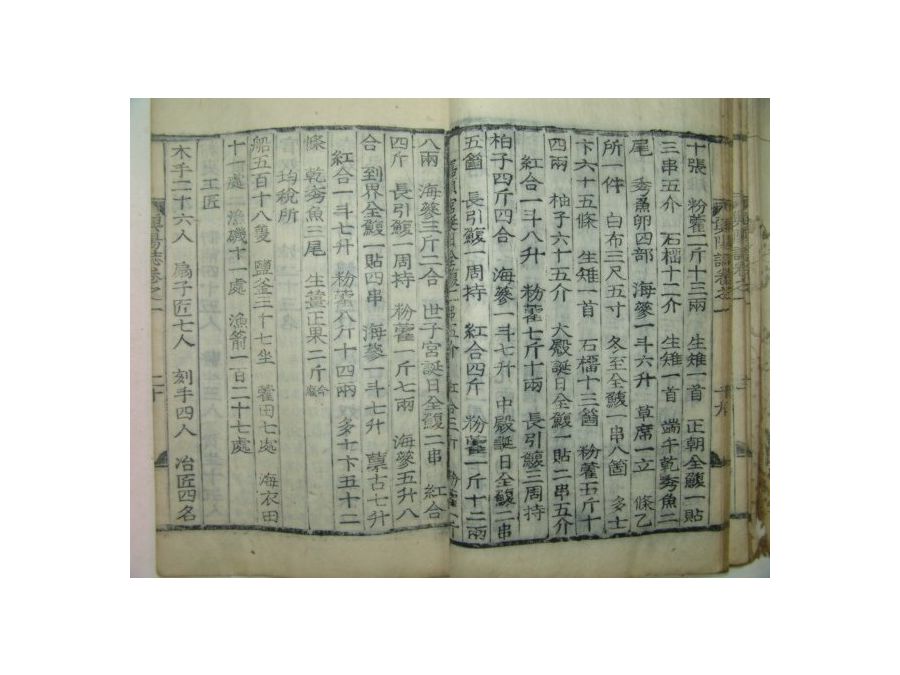 十張 粉藿二斤十三兩 生雉一首 正朝全鰒一貼
三串五介 石榴十二介 生雉一首 端午乾秀魚二
尾 秀魚卵四部 海蔘一斗六升 草席一立 條乙
所一件 白布三尺五寸 冬至全鰒一串八箇 多士
卞六十五條 生雉一首 石榴十三箇 粉藿五斤十
四兩 柚子六十五介 大殿誕日全鰒一貼二串五介
紅合一斗八升 粉藿七斤十兩 長引鰒三周持
柏子四斤四合 海蔘一斗七升 中殿誕日全鰒一串
五箇 長引鰒一周持 紅合四斤 粉藿一斤十二兩
八兩 海蔘三斤二合 世子宮誕日全鰒二串 紅合
四斤 長引鰒一周持 粉藿一斤七兩 海蔘五升八
合 到界全鰒一貼四串 海蔘一斗七升 藁古七升
紅合一斗七升 粉藿八斤十四兩 多士卞五十二
條 乾秀魚三尾 生薑正果二斤
均稅所
船五百十八隻 鹽釜三十七坐 藿田七處 海衣田
十一處 漁磯十一處 漁箭一百二十七處
工匠
木手二十六人 扇子匠七人 刻手四人 冶匠四名
興陽誌卷之一 二十